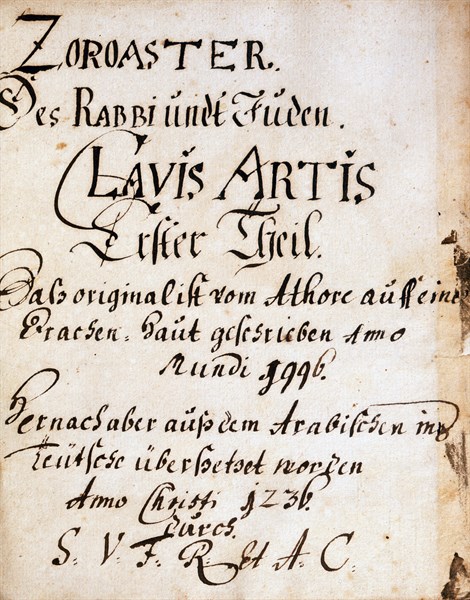 ZOROASTER.
Des RABBI undt Juden.
CLAVIS ARTIS
Erster Theil.
Daß original ist vom Athore auff eine
Drachen-Haut geschrieben Anno
Mundi 1996.
Hernach aber auß dem Arabischen ins
Teütsche überßetzet worden
Anno Christi 1236.
durch.
S. V. F. R. Et A. C.